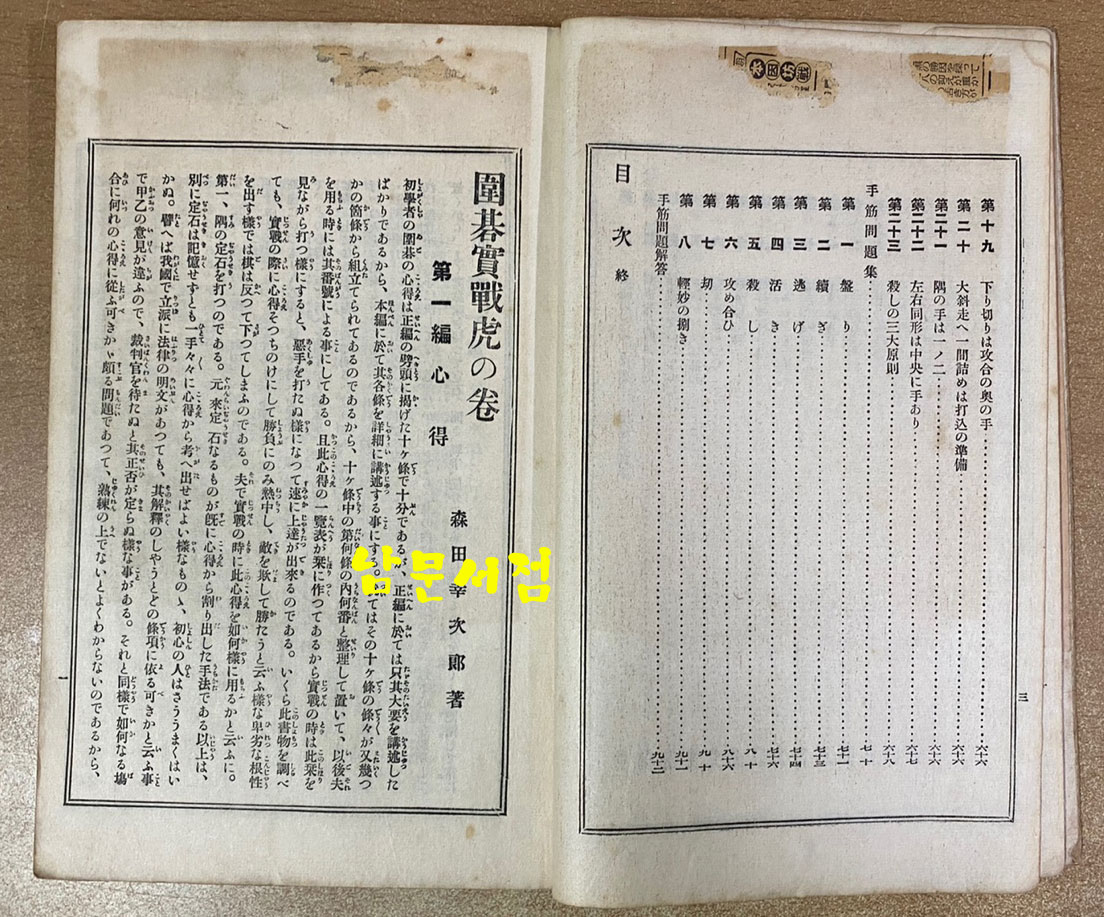 本因坊戦
第十九 下り切りは攻合の奥の手……六十六
第二十 大斜走へ一間詰めは打込の準備……六十六
第二十一 隅の手は一ノ二……六十六
第二十二 左右同形は中央に手あり……六十七
第二十三 殺しの三大原則……六十八
手筋問題集……七十
第一 盤り……七十一
第二 續ぎ……七十三
第三 逃げ……七十四
第四 活き……七十六
第五 殺し……八十
第六 攻め合ひ……八十六
第七 刧……九十
第八 輕妙の捌き……九十一
手筋問題解答……九十二
目次終
三
圍碁實戰虎の卷
第一編 心得
森田幸次郎著
初學者の圍碁の心得は正編の劈頭に揭げた十ヶ條で十分であるが、正編に於ては只其大要を講述した
ばかりであるから、本編に於て其各條を詳細に講述する事にする。てはその十ヶ條の條々が又幾つ
かの箇條から組立てられてあるのであるから、十ヶ條中の第何條の內何番と整理して置いて、以後夫
を用る時には其番號による事にしてある。且此心得の一覽表が栞に作つてあるから實戰の時は此栞を
見ながら打つ樣にすると、惡手を打たぬ樣になつて速に上達が出來るのである。いくら此書物を調べ
ても、實戰の際に心得そつちのけにして勝負にのみ熱中し、敵を欺して勝たうと云ふ樣な卑劣な根性
を出す樣では棋は反つて下つてしまふのである。夫で實戰の時に此心得を如何樣に用るかと云ふに。
第一、隅の定石を打つのである。元來定石なるものが旣に心得から割り出した手法である以上は、
別に定石は記憶せずとも一手々々に心得から考へ出せばよい樣なものゝ、初心の人はさううまくはい
かぬ。譬へば我國で立派に法律の明文があつても、其解釋のしやうとどの條項に依る可きかと云ふ事
で甲乙の意見が違ふので、裁判官を待たぬと其正否が定らぬ樣な事がある。それと同樣で如何なる塲
合に何れの心得に從ふ可きかゞ頗る問題であつて、熟練の上でないとよくわからないのであるから、
一
남문서점